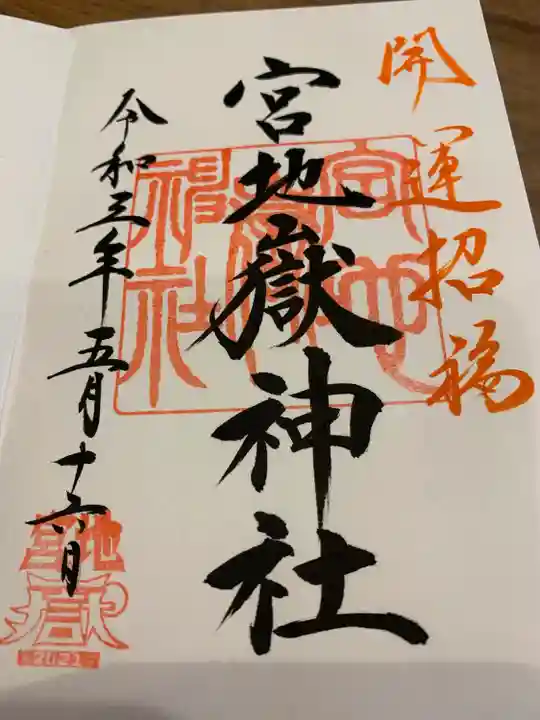 開運招福
宮地嶽神社
宮地嶽神社
令和三年五月十六日
宮地
嶽
2021